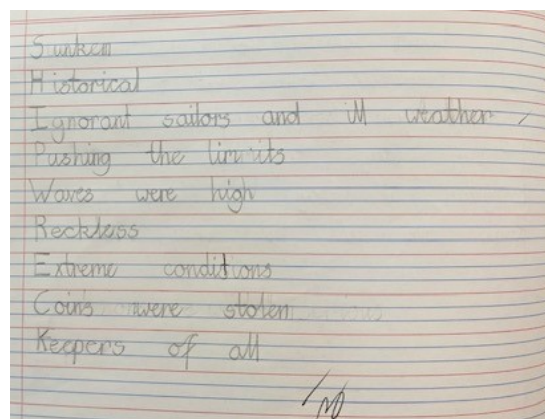 Sunken
Historical
Ignorant sailors and ill weather
Pushing the limits
Waves were high
Reckless
Extreme conditions
Coins were stolen
Keepers of all